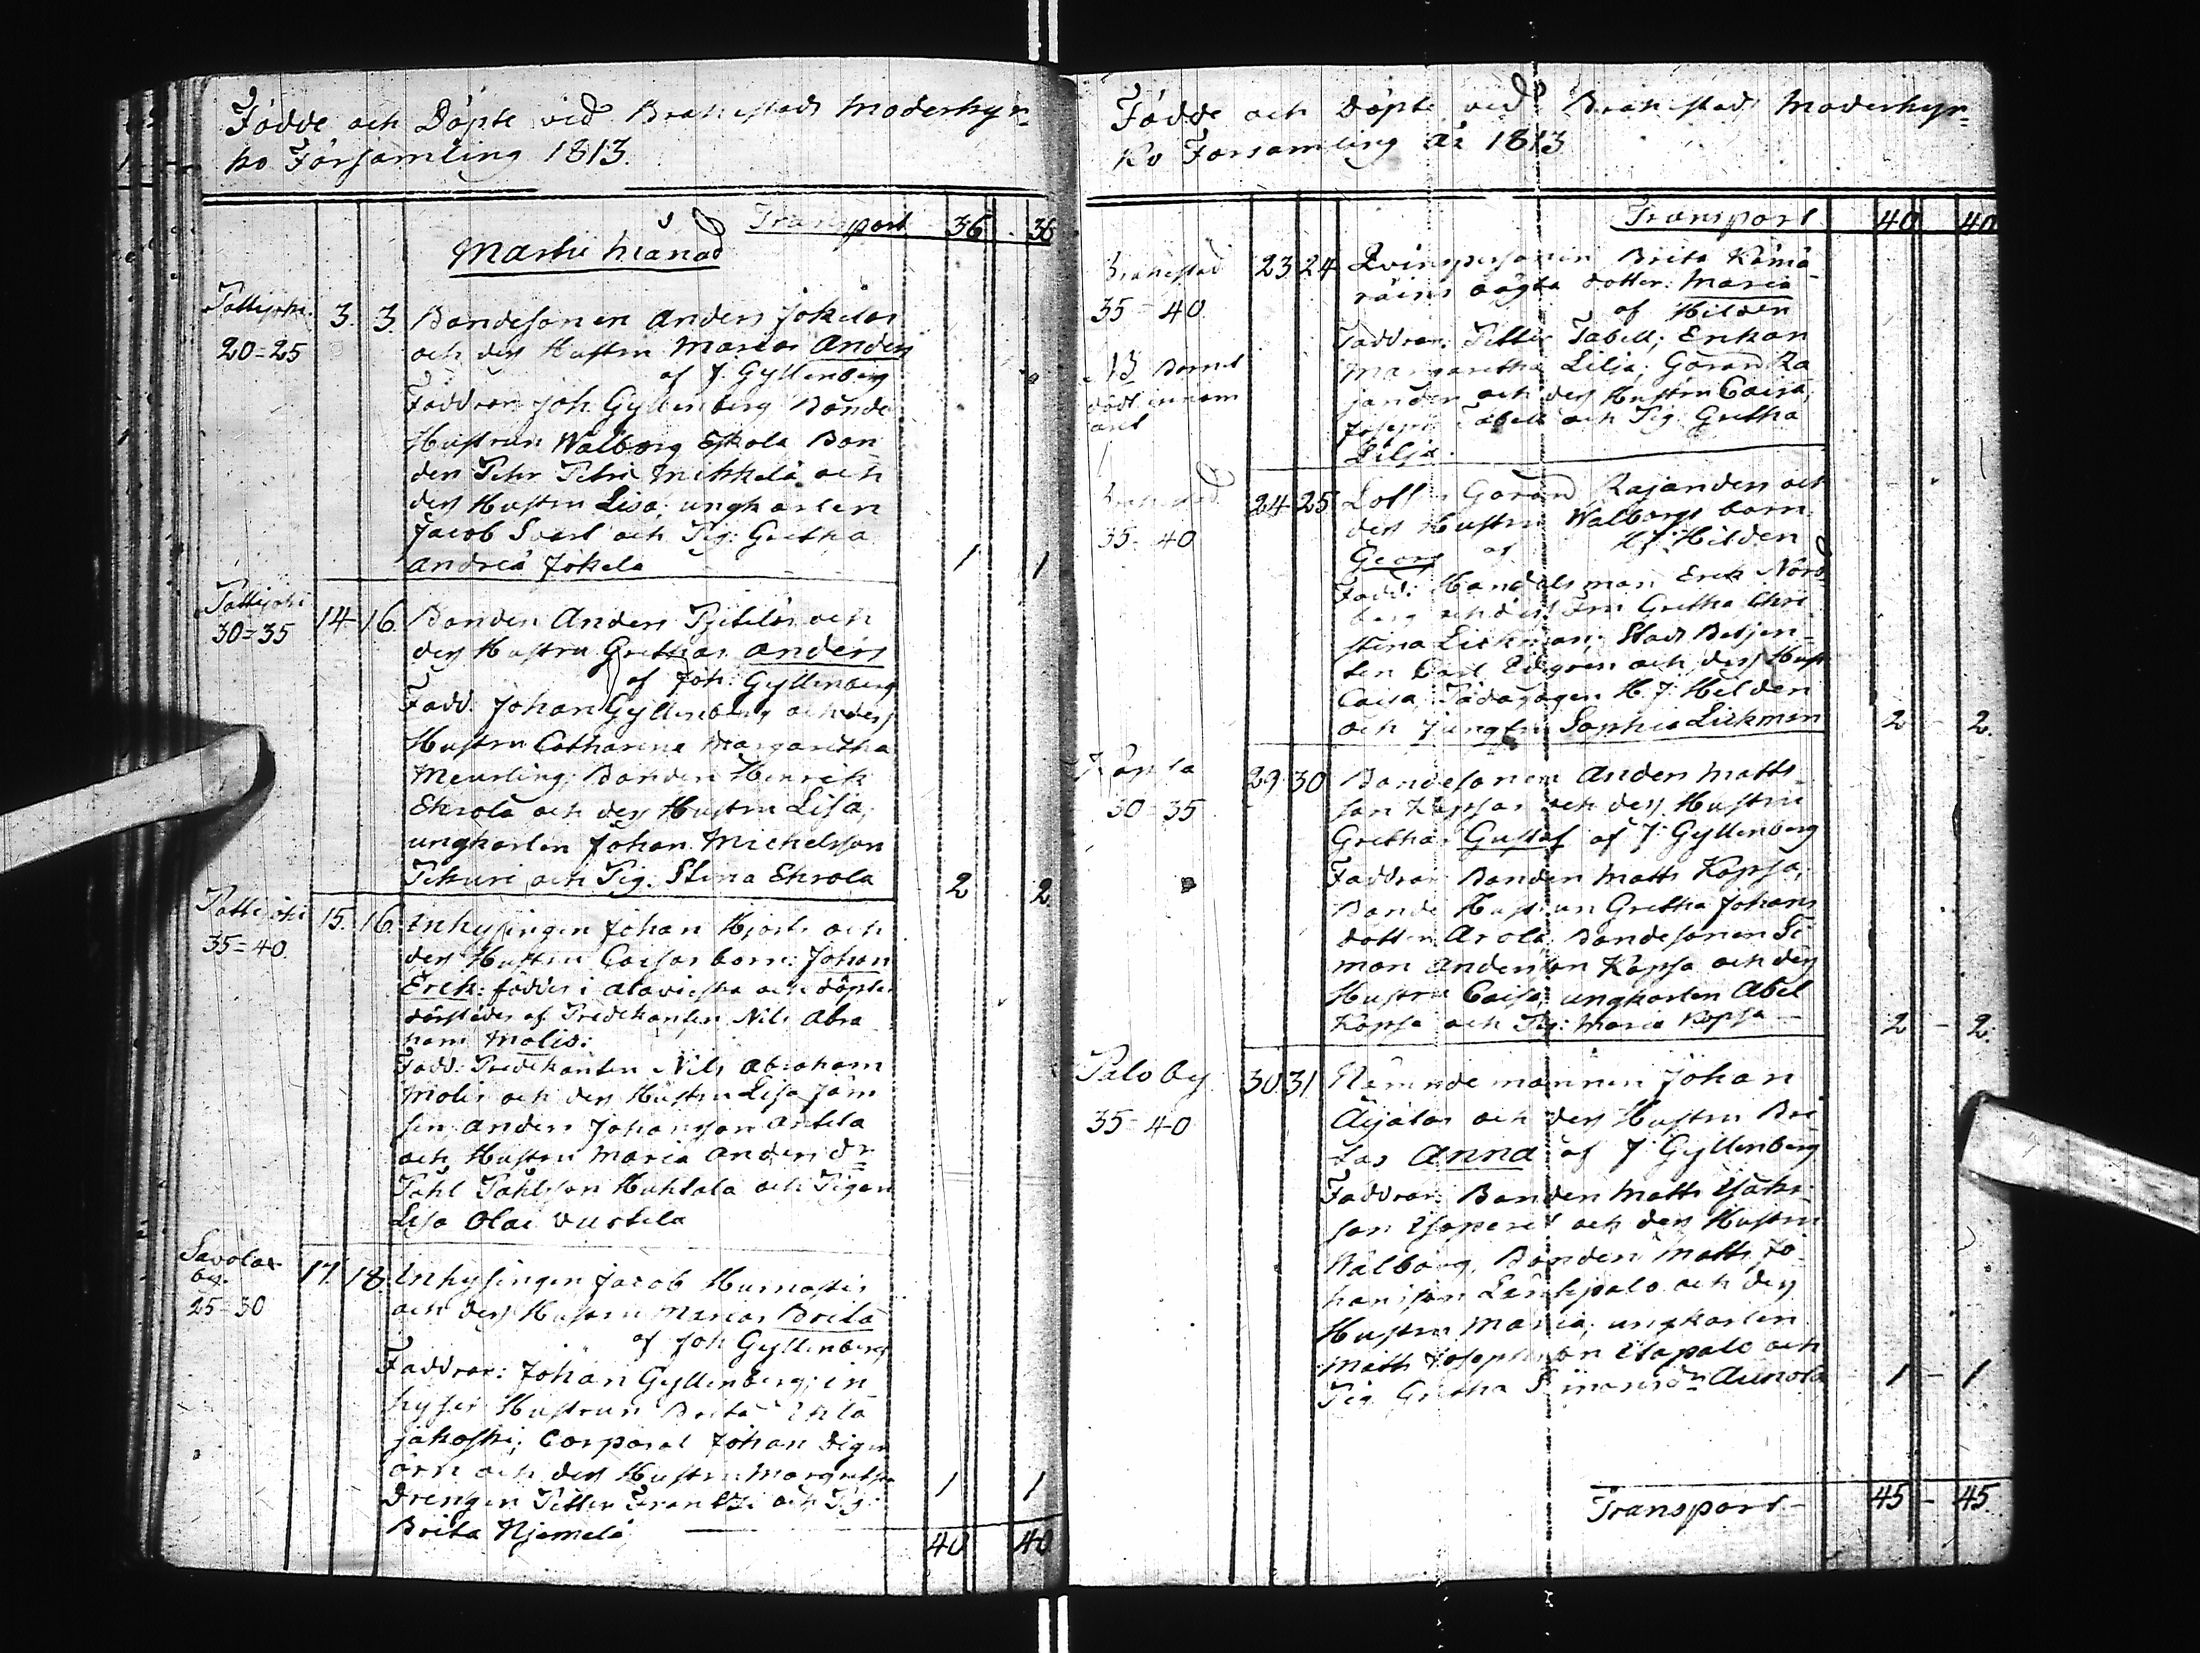 Födde och Döpte vid Brahestads Moderkyr-
ko Församling 1813.
Transport 36 36
Martii Månad
Pattijoki 20=25
3. 3. Bondesonen Anders Jokelas
och dess Hustru Marias Anders
af J. Gyllenberg
Faddrar Joh. Gyllenberg Bonde
Hustrun Walborg Eskola Bon-
den Pehr Mikkelä och
dess Hustru Lisa; ungkarlen
Jacob Svart och Pig: Gretha
Andreæ Jokela 1 1
Pattijoki 30=35
14 16. Bonden Anders och
dess Hustru Grethas Anders
af Joh: Gyllenberg
Fadd: Johan Gyllenberg och dess
Hustru Catharina Margaretha
Meurling; Bonden Henrik
Ekrola och dess Hustru Lisa,
ungkarlen Johan Michelsson
och Pig. Stina Ekrola 2 2.
Pattijoki 35=40.
15. 16. Inhysingen Johan Hjorts och
dess Hustru Caisas barn: Johan
Erik: föddes i Alavieska och döptes
därstädes af Predikanten Nils Abra
ham Molis:
Fadd: Predikanten Nils Abraham
Molis och dess Hustru Lisa
Anders Johansson Anttila
och Hustru Maria Anders dr
Påhl Påhlsson Huhtala och Pigan
Lisa Olai
Savolax by. 25=30
17. 18. Inhysingen Jacob
och dess Hustru Marias Brita
af Joh Gyllenberg
Faddrar: Johan Gyllenberg; in-
hyses Hustrun Brita
Corporal Johan
örn och dess Hustru Margretha
Drengen Petter och Pig:
Brita Njemelä 1 1
40 40
Födde och Döpte vid Brahestads Moderkyr-
ko Församling år 1813
Transport 40 40
Brahestad 35=40.
NB Barnet
dödt innom
året
23 24 Qvinspersonen Brita
oägta dotter: Maria
af Hilden
Faddrar: Petter Tabell; Enkan
Margaretha Lilja; Göran Ra
janden och dess Hustru Caisa,
Joseph Tabell och Pig: Gretha
Lilja.
Brahestad 35=40
24 25 Lots Göran Rajanders och
dess Hustru Walborgs barn
Georg af H: J: Hilden
Fadd: Handelsman Erik Nord
berg och dess Fru Gretha Chri
stina Lickman; Stads Betjen-
ten Carl Edgren och dess Hust
Caisa; Pädagogen H. J: Hilden
och Jungfru Sophia Lickman 2 - 2.
Kopsa 30=35
29 30 Bondesonen Anders Matts-
son Kopsas och dess Hustru
Grethas Gustaf af J: Gyllenberg
Faddrar: Bonden Matts Kopsa;
Bonde Hustrun Gretha Johans
dotter Arola; Bondesonen Si
mon Andersson Kopsa och dess
Hustru Caisa; ungkarlen Abel
Kopsa och Pig: Maria Kopsa 2 - 2.
Palo by 35=40
30. 31 Nämndemannen Johan
Äijälas och dess Hustru Bri
tas Anna af J Gyllenberg
Faddrar: Bonden Matts
son och dess Hustru
Walborg, Bonden Matts Jo-
hansson och dess
Hustru Maria; ungkarlen
Matts Josephsson och
Pig. Gretha Simonsdr 1 - 1
Transport 45 - 45.